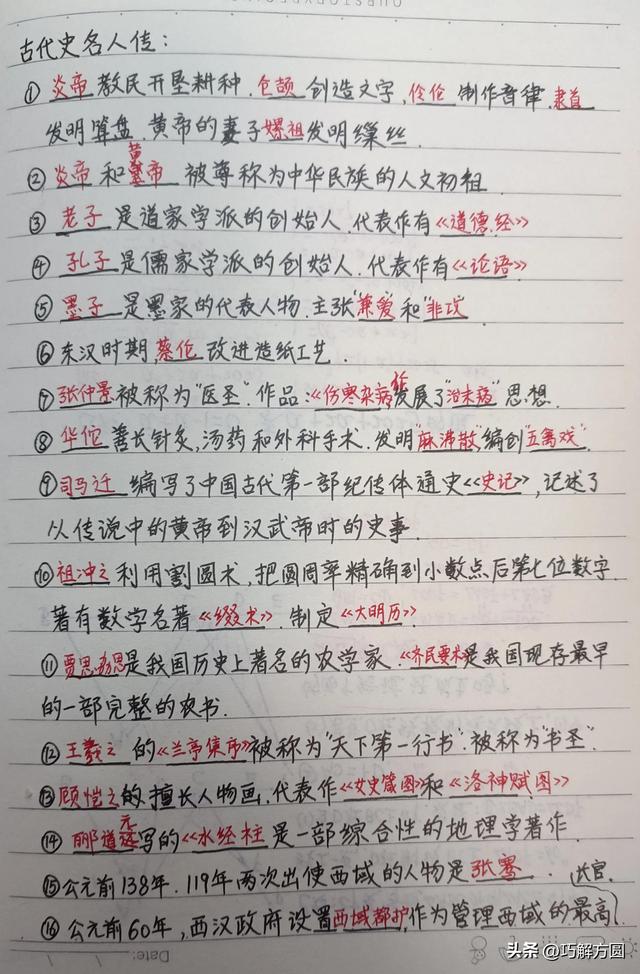 古代史名人传:
① 炎帝 教民开垦耕种. 仓颉 创造文字, 伶伦 制作音律. 隶首
发明算盘. 黄帝的妻子嫘祖发明缫丝.
② 炎帝 和 黄帝 被尊称为中华民族的人文初祖.
③ 老子 是道家学派的创始人. 代表作有《道德经》
④ 孔子 是儒家学派的创始人. 代表作有《论语》
⑤ 墨子 是墨家的代表人物. 主张"兼爱"和"非攻"
⑥ 东汉时期, 蔡伦 改进造纸工艺.
⑦ 张仲景被称为"医圣". 作品:《伤寒杂病论 发展了"治未病"思想.
⑧ 华佗 善长针灸, 汤药和外科手术. 发明"麻沸散"编创"五禽戏".
⑨ 司马迁 编写了中国古代第一部纪传体通史《史记》, 记述了
从传说中的黄帝到汉武帝时的史事.
⑩ 祖冲之 利用割圆术, 把圆周率精确到小数点后第七位数字.
著有数学名著《缀术》. 制定《大明历》.
⑪ 贾思勰是我国历史上著名的农学家.《齐民要术是我国现存最早
的一部完整的农书.
⑫ 王羲之 的《兰亭集序》被称为"天下第一行书". 被称为"书圣".
⑬ 顾恺之的擅长人物画, 代表作《女史箴图》和《洛神赋图》
⑭ 郦道元写的《水经柱 是一部综合性的地理学著作.
⑮ 公元前138年. 119年两次出使西域的人物是张骞.
⑯ 公元前60年, 西汉政府设置西域都护, 作为管理西域的最高
长官.
Date:
头条 @巧解方圆